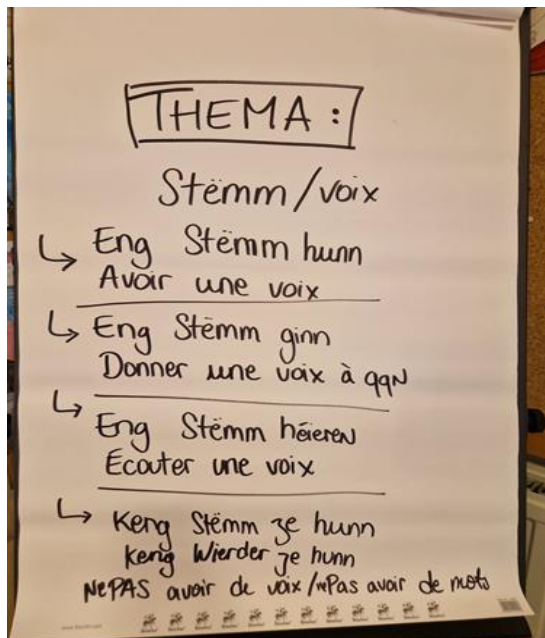 THEMA :
Stëmm/voix
↳ Eng Stëmm hunn
Avoir une voix
↳ Eng Stëmm ginn
Donner une voix à qqN
↳ Eng Stëmm héieren
Ecouter une voix
↳ Keng Stëmm ze hunn
Keng Wierder ze hunn
NePAS avoir de voix/nePas avoir de mots